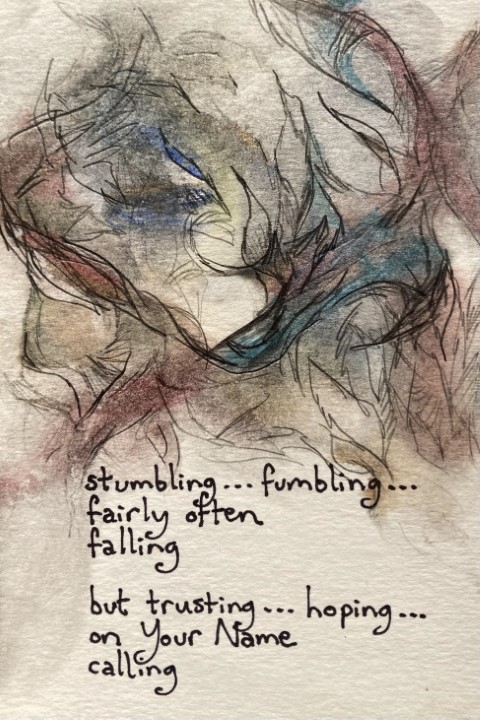 stumbling... fumbling...
fairly often
falling
but trusting... hoping...
on Your Name
calling